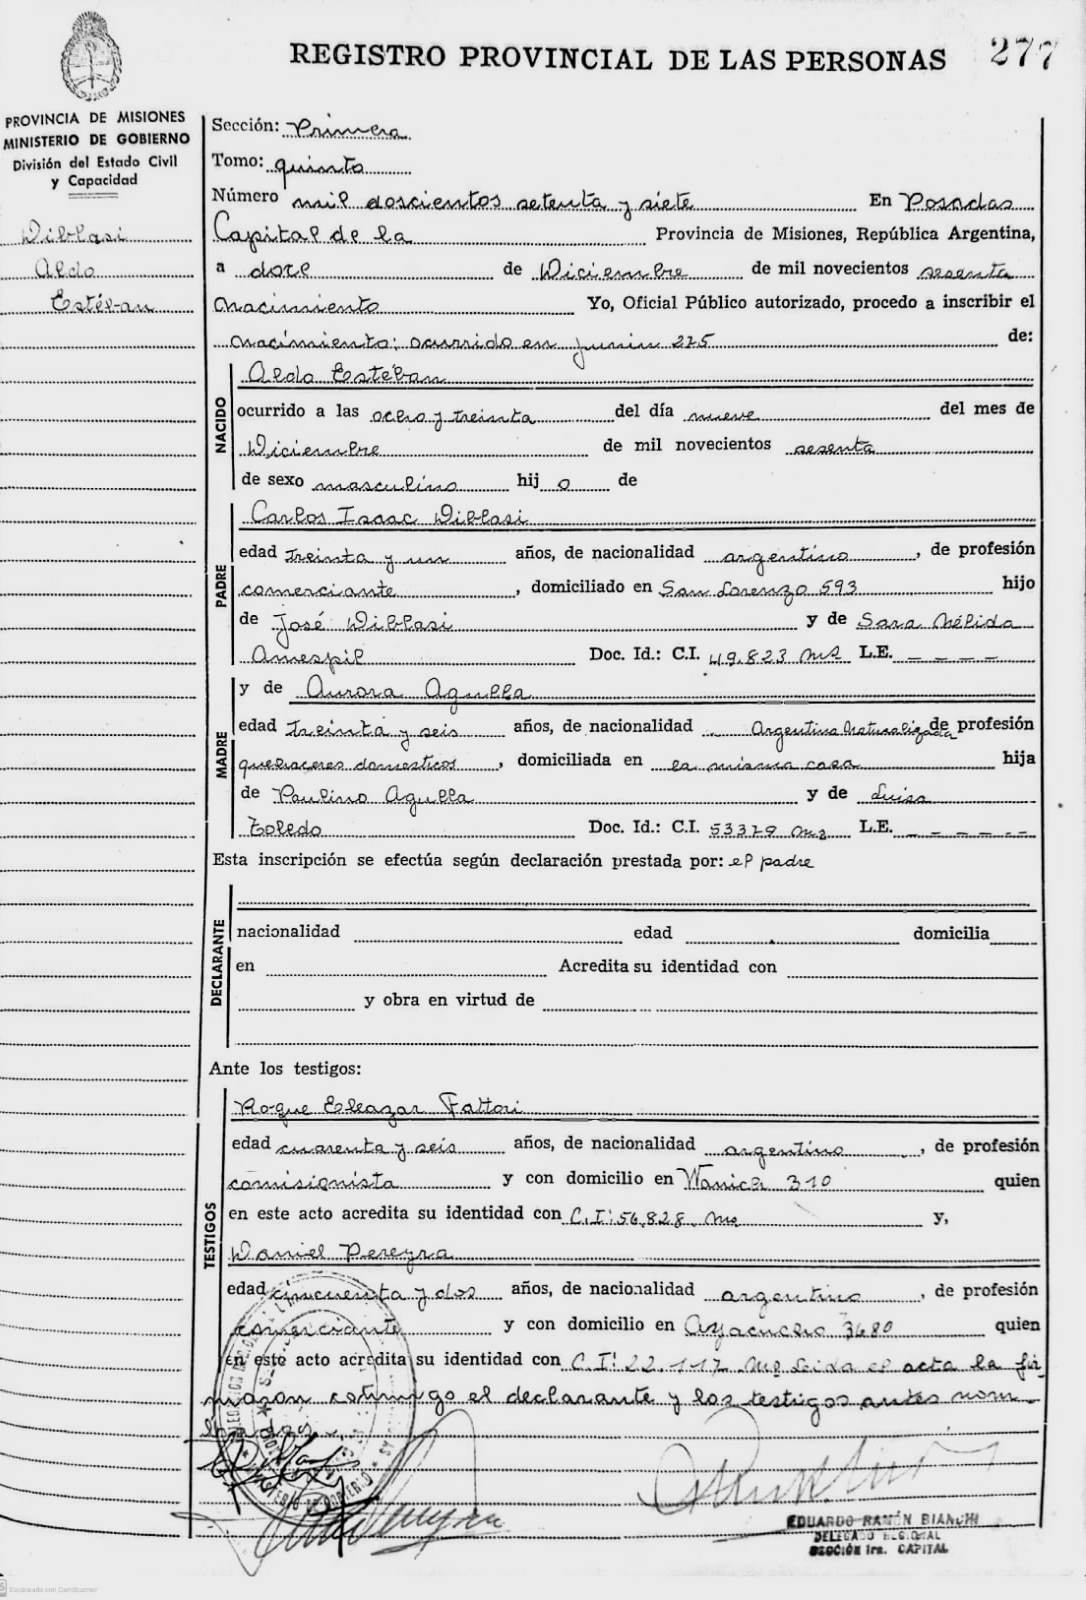 REGISTRO PROVINCIAL DE LAS PERSONAS 277
PROVINCIA DE MISIONES
MINISTERIO DE GOBIERNO
División del Estado Civil
y Capacidad
Diblasi
Aldo
Estéban
Sección: Primera
Tomo: quinto
Número mil doscientos setenta y siete En Posadas
Capital de la Provincia de Misiones, República Argentina,
a doce de Diciembre de mil novecientos sesenta
nacimiento Yo, Oficial Público autorizado, procedo a inscribir el
nacimiento: ocurrido en Junin 275 de:
NACIDO
Aldo Estéban
ocurrido a las ocho y treinta del día nueve del mes de
Diciembre de mil novecientos sesenta
de sexo masculino hij o de
PADRE
Carlos Isaac Diblasi
edad treinta y un años, de nacionalidad argentino, de profesión
comerciante, domiciliado en San Lorenzo 593 hijo
de José Diblasi y de Sara Nélida
Amespil Doc. Id.: C.I. 49.823 Ms L.E. – – – –
MADRE
y de Aurora Agulla
edad treinta y seis años, de nacionalidad Argentina Naturalizada de profesión
quehaceres domesticos, domiciliada en la misma casa hija
de Paulino Agulla y de Luisa
Toledo Doc. Id.: C.I. 53379 Ms L.E. – – – – –
Esta inscripción se efectúa según declaración prestada por: el padre
DECLARANTE
nacionalidad edad domicilia
en Acredita su identidad con
y obra en virtud de
Ante los testigos:
TESTIGOS
Roque Eleazar Fattori
edad cuarenta y seis años, de nacionalidad argentino, de profesión
comisionista y con domicilio en 310 quien
en este acto acredita su identidad con C.I: 56.828. Ms y,
Daniel Pereyra
edad cincuenta y dos años, de nacionalidad argentino, de profesión
comerciante y con domicilio en Ayacucho 3680 quien
en este acto acredita su identidad con C.I: 22.117. Ms Leida el acta la fir-
maron conmigo el declarante y los testigos antes nom-
EDUARDO RAMÓN BIANCHI
DELEGADO REGIONAL
SECCIÓN 1ra. CAPITAL
Escaneado con CamScanner